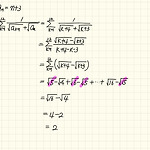 aₙ = n+3
∑ₖ₌₁¹² 1/(√aₖ₊₁ + √aₖ) = ∑ₖ₌₁¹² 1/(√k+4 + √k+3)
= ∑ₖ₌₁¹² (√k+4 - √k+3)/(k+4-k-3)
= ∑ₖ₌₁¹² (√k+4 - √k+3)
= √5 - √4 + √6 - √5 + ⋯ + √16 - √15
= √16 - √4
= 4 - 2
= 2